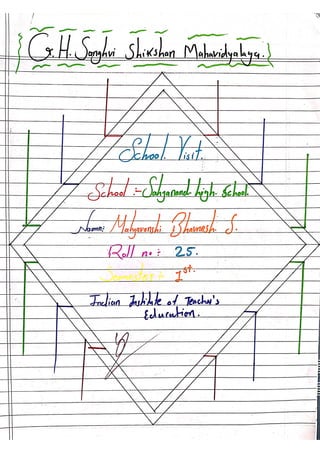 G.H. Sanghvi Shikshan Mahavidyalaya.
School Visit.
School :- Sahajanand high School.
Name: Mahyavanshi Bhavesh S.
Roll no :- 25.
Semester :- 1st.
Indian Institute of Teacher's
Education.